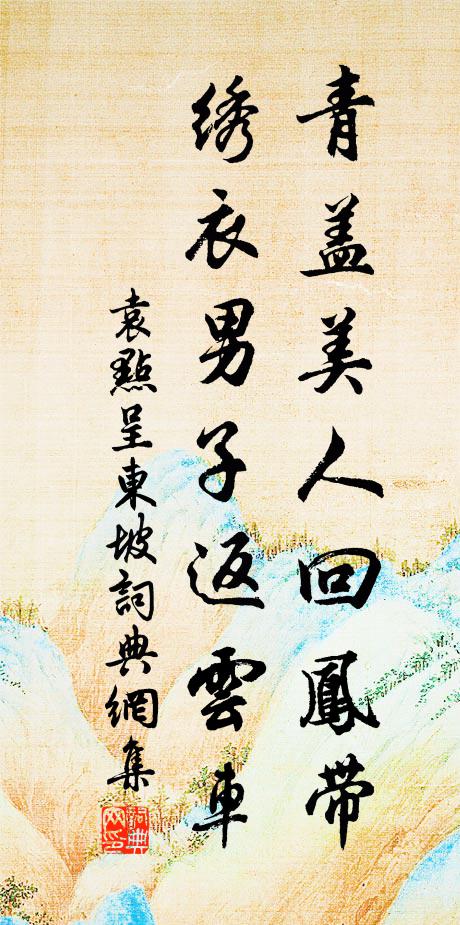 青盖美人回鳳带
綉衣男子返雲車
袁點呈東坡詞典網集
詞典網印